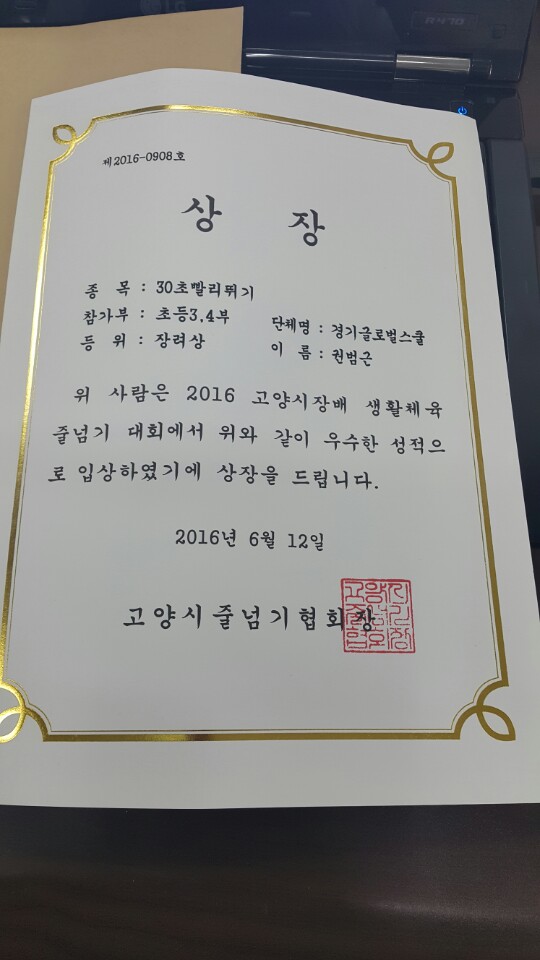 R470
제2016-0908호
상 장
종 목 : 30초빨리뛰기
참가부 : 초등3,4부
단체명 : 경기글로벌스쿨
등 위 : 장려상
이 름 : 권범근
위 사람은 2016 고양시장배 생활체육
줄넘기 대회에서 위와 같이 우수한 성적으
로 입상하였기에 상장을 드립니다.
2016년 6월 12일
고양시줄넘기협회장